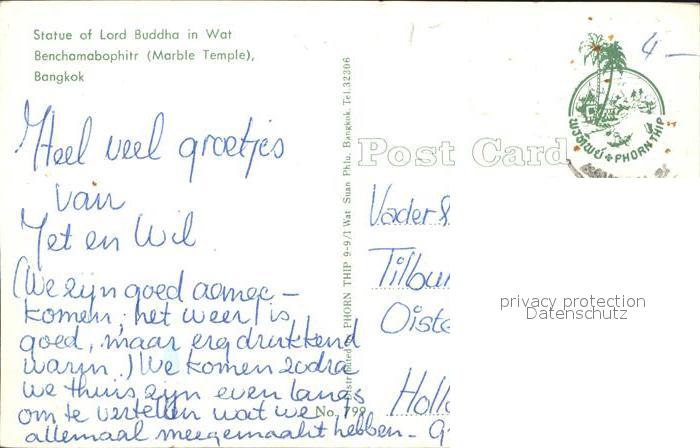 Statue of Lord Buddha in Wat
Benchamabophitr (Marble Temple),
Bangkok
4 —
พรทิพย์ PHORNTHIP
Post Card
Distributed by PHORN THIP 9-9/1 Wat Suan Phlu, Bangkok. Tel.32306
No. 799
Heel veel groetjes
van
Jet en Wil
(We zijn goed aange-
komen, het weer is
goed, maar erg drukkend
warm.) We komen zodra
we thuis zijn even langs
om te vertellen wat we
allemaal meegemaakt hebben - G
Vader &
Tilbu
Oiste
Holl
privacy protection
Datenschutz